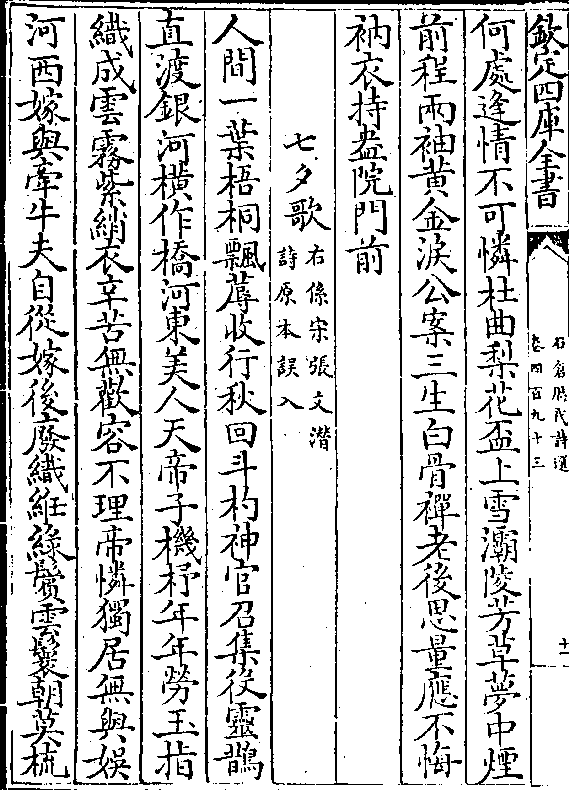 欽定四庫全書
石倉歷代詩選
卷四百九十三
十一
何處逢情不可憐杜曲梨花盃上雪灞陵芳草夢中煙
前程兩袖黃金淚公案三生白骨禪老後思量應不悔
衲衣持盋院門前
七夕歌
右係宋張文潛
詩原本誤入
人間一葉梧桐飄蓐收行秋回斗杓神官召集役靈鵲
直渡銀河橫作橋河東美人天帝子機杼年年勞玉指
織成雲霧紫綃衣辛苦無歡容不理帝憐獨居無與娛
河西嫁與牽牛夫自從嫁後廢織絍綠鬢雲鬟朝莫梳